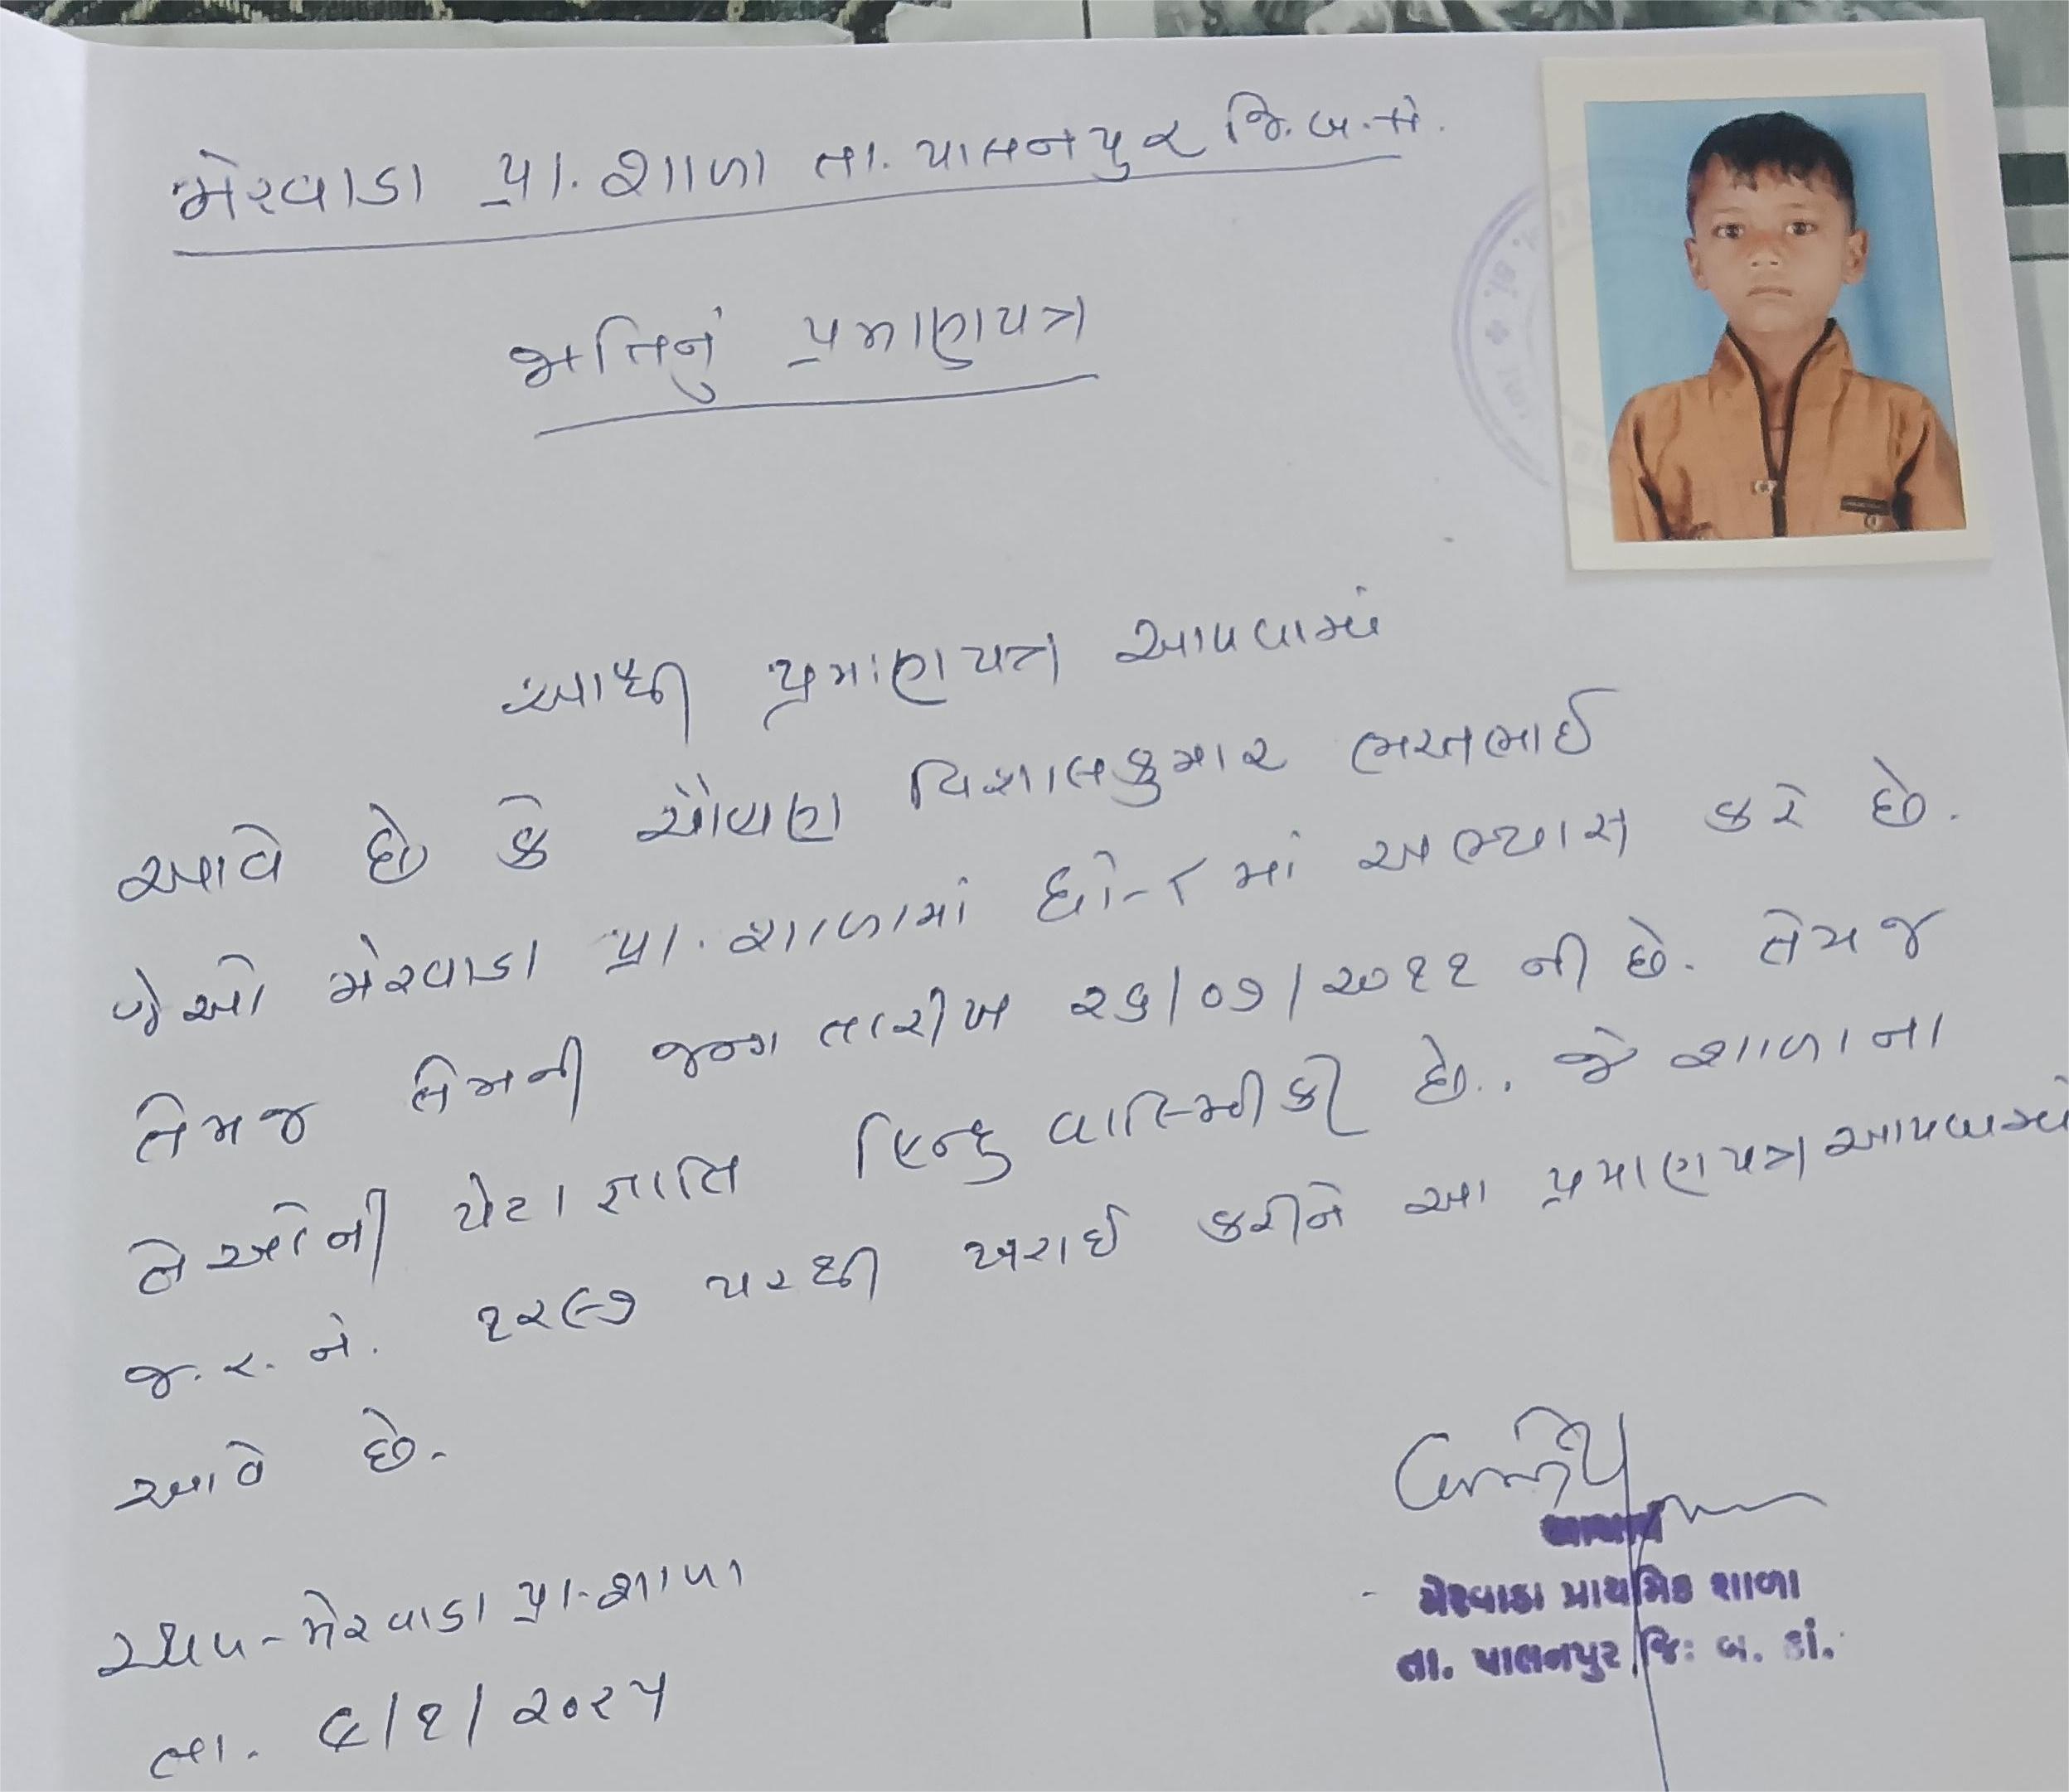 મેરવાડા પ્રા. શાળા તા. પાલનપુર જિ. બ.
જાતિનું પ્રમાણપત્ર
આથી પ્રમાણપત્ર આપવામાં
આવે છે કે ચૌહાણ વિશાલકુમાર ભરતભાઈ
જેઓ મેરવાડા પ્રા. શાળામાં ધો-૮ માં અભ્યાસ કરે છે.
તેમજ તેમની જન્મ તારીખ ૨૬/૦૭/૨૦૧૧ ની છે. તેમજ
તેઓની પેટા જ્ઞાતિ હિન્દુ વાલ્મિકી છે.. જે શાળાના
જ.ર. નં. ૧૨૯૭ પરથી ખરાઈ કરીને આ પ્રમાણપત્ર આપવામાં
આવે છે.
આચાર્ય
મેરવાડા પ્રાથમિક શાળા
તા. પાલનપુર જિ: બ. કાં.
સ્થળ - મેરવાડા પ્રા. શાળા
તા. ૯/૧/૨૦૨૫